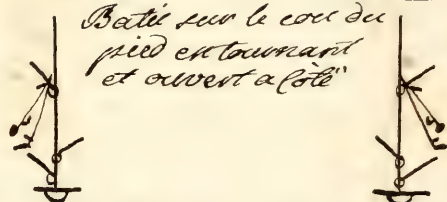 Batü sur le cou du
pied en tournant
et ouvert a Côté"